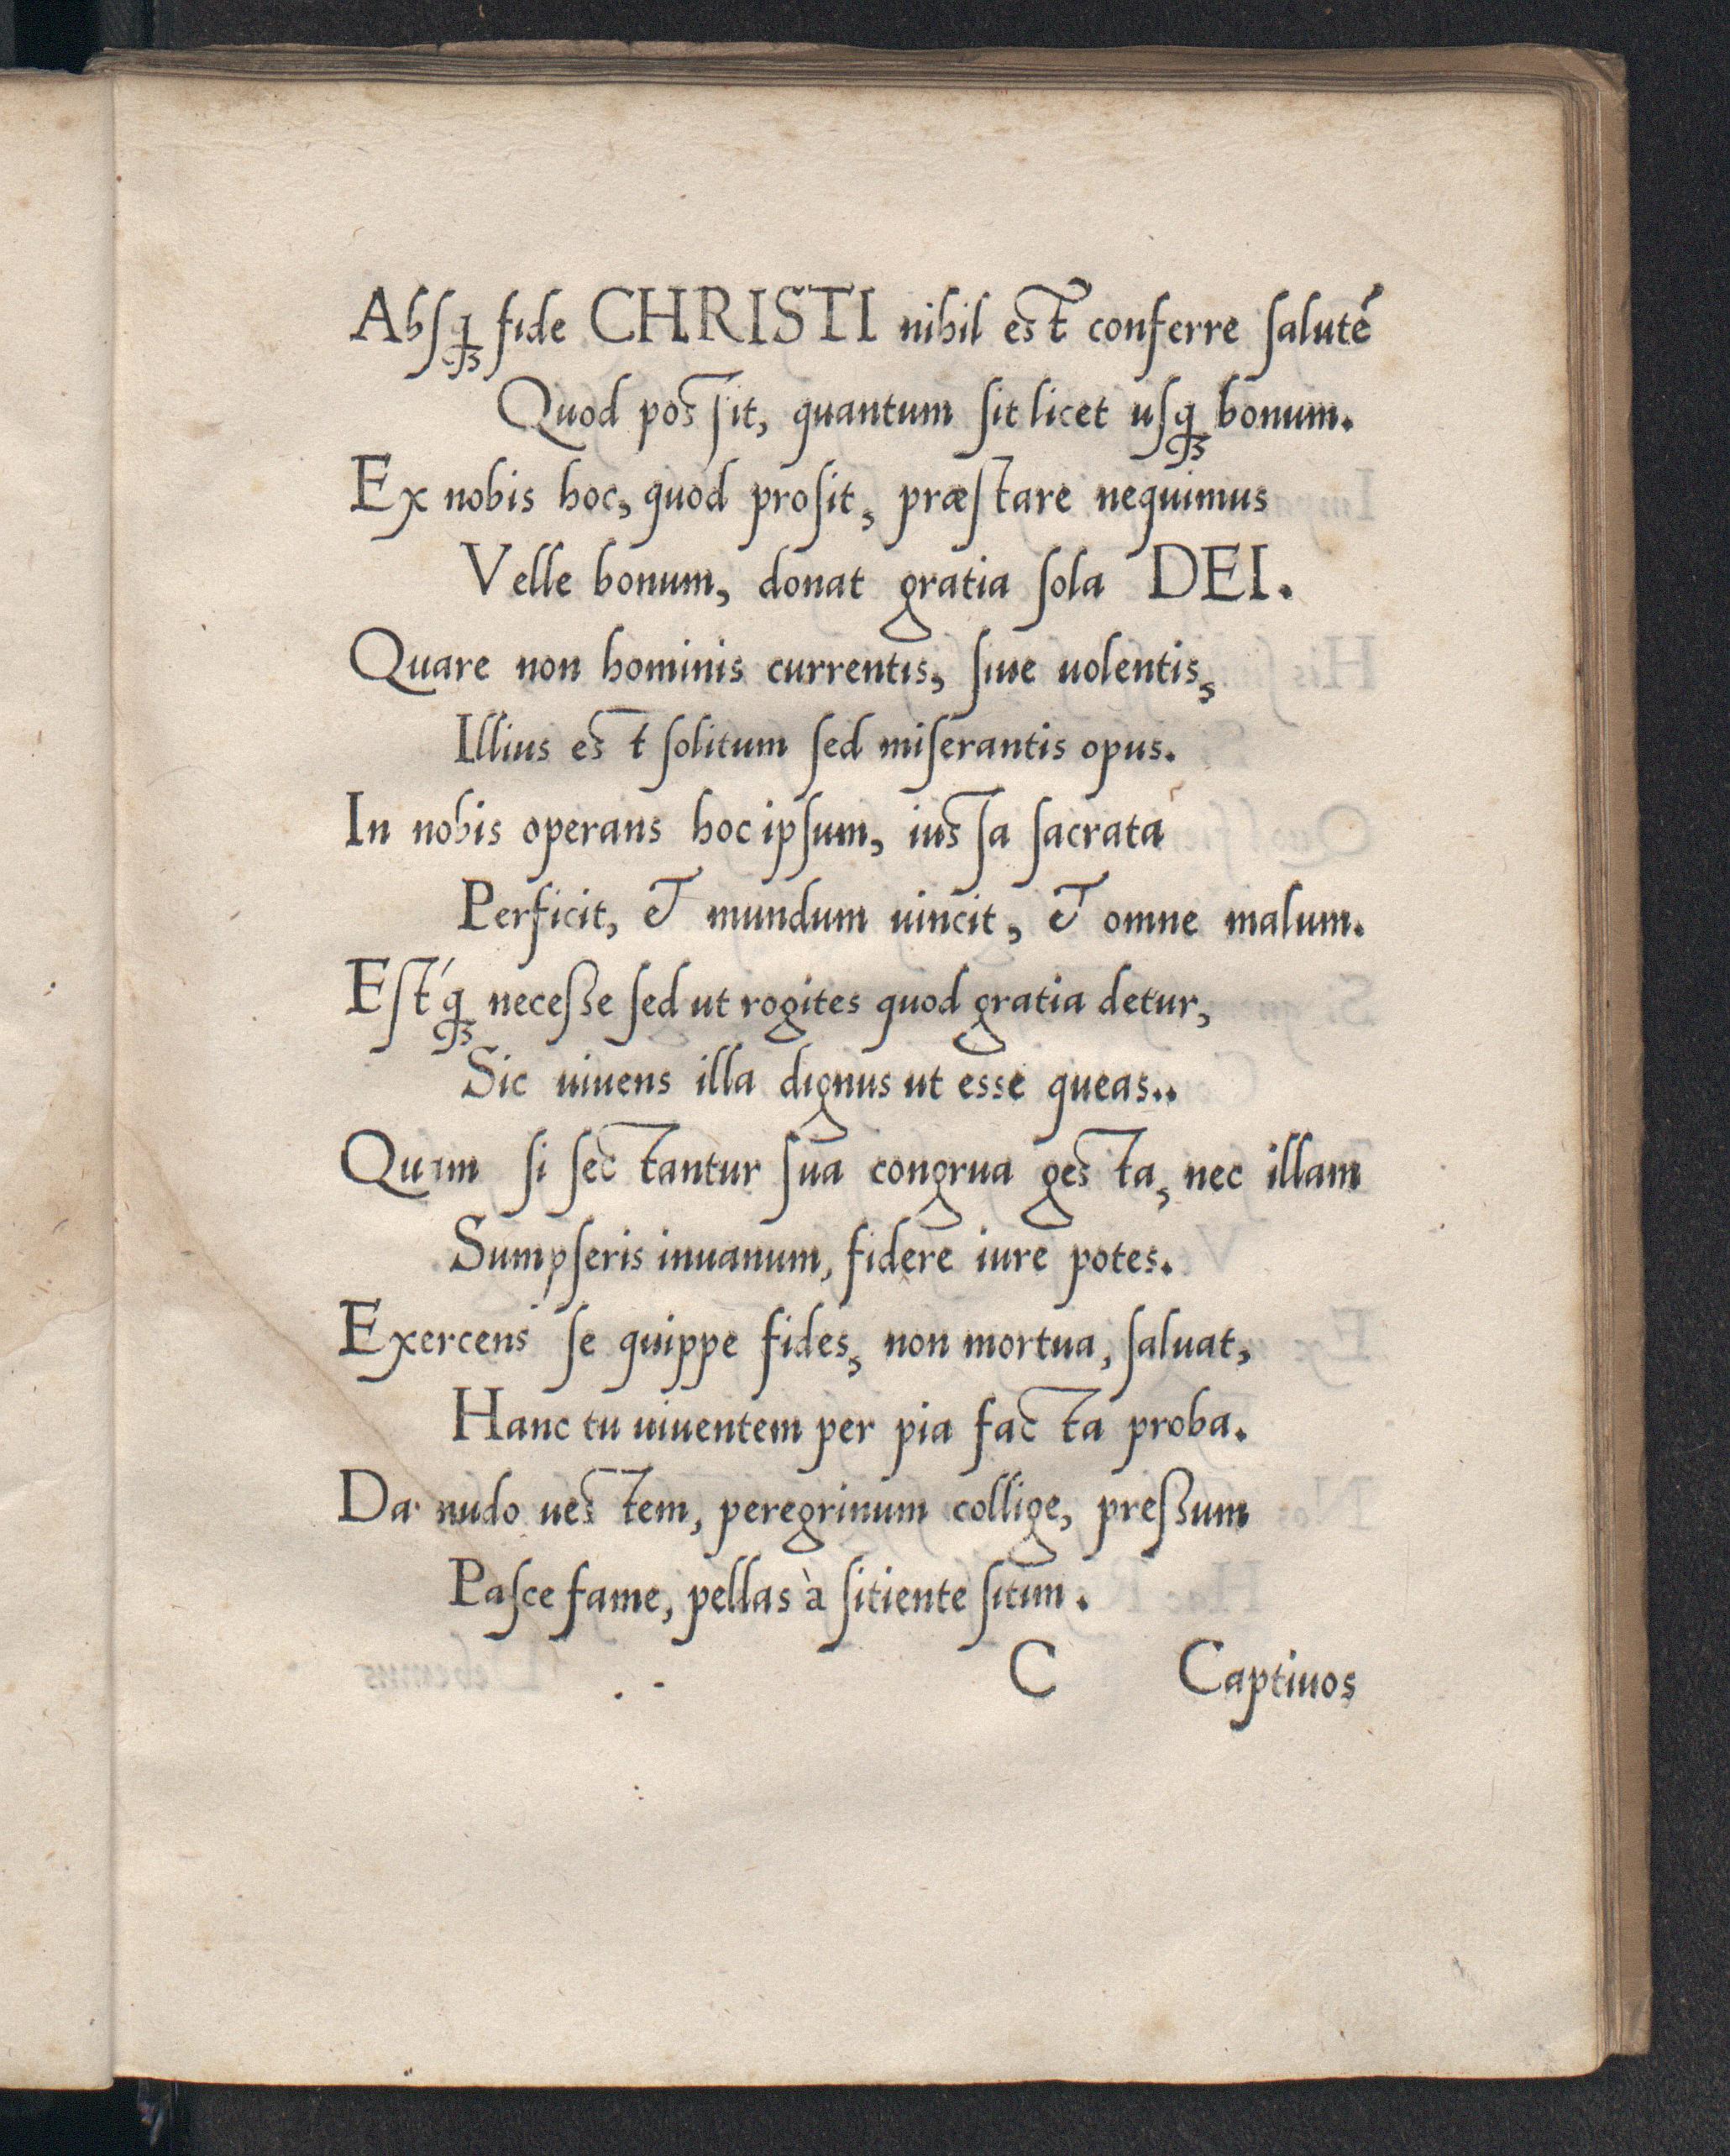 Abſqꝫ fide CHRISTI nihil est conferre ſalutē
Quod posſit, quantum ſit licet uſqꝫ bonum.
Ex nobis hoc, quod proſit, præſtare nequimus
Velle bonum, donat gratia ſola DEI.
Quare non hominis currentis, ſiue uolentis,
Illius est ſolitum ſed miſerantis opus.
In nobis operans hoc ipſum, iusſa ſacrata
Perficit, & mundum uincit, & omne malum.
Eſt'qꝫ neceſſe ſed ut rogites quod gratia detur,
Sic uiuens illa dignus ut esse queas..
Quam ſi ſectantur ſua congrua gesta, nec illam
Sumpſeris inuanum, fidere iure potes.
Exercens ſe quippe fides, non mortua, ſaluat,
Hanc tu uiuentem per pia facta proba.
Da nudo uestem, peregrinum collige, preſſum
Paſce fame, pellas à ſitiente ſitim.
C Captiuos